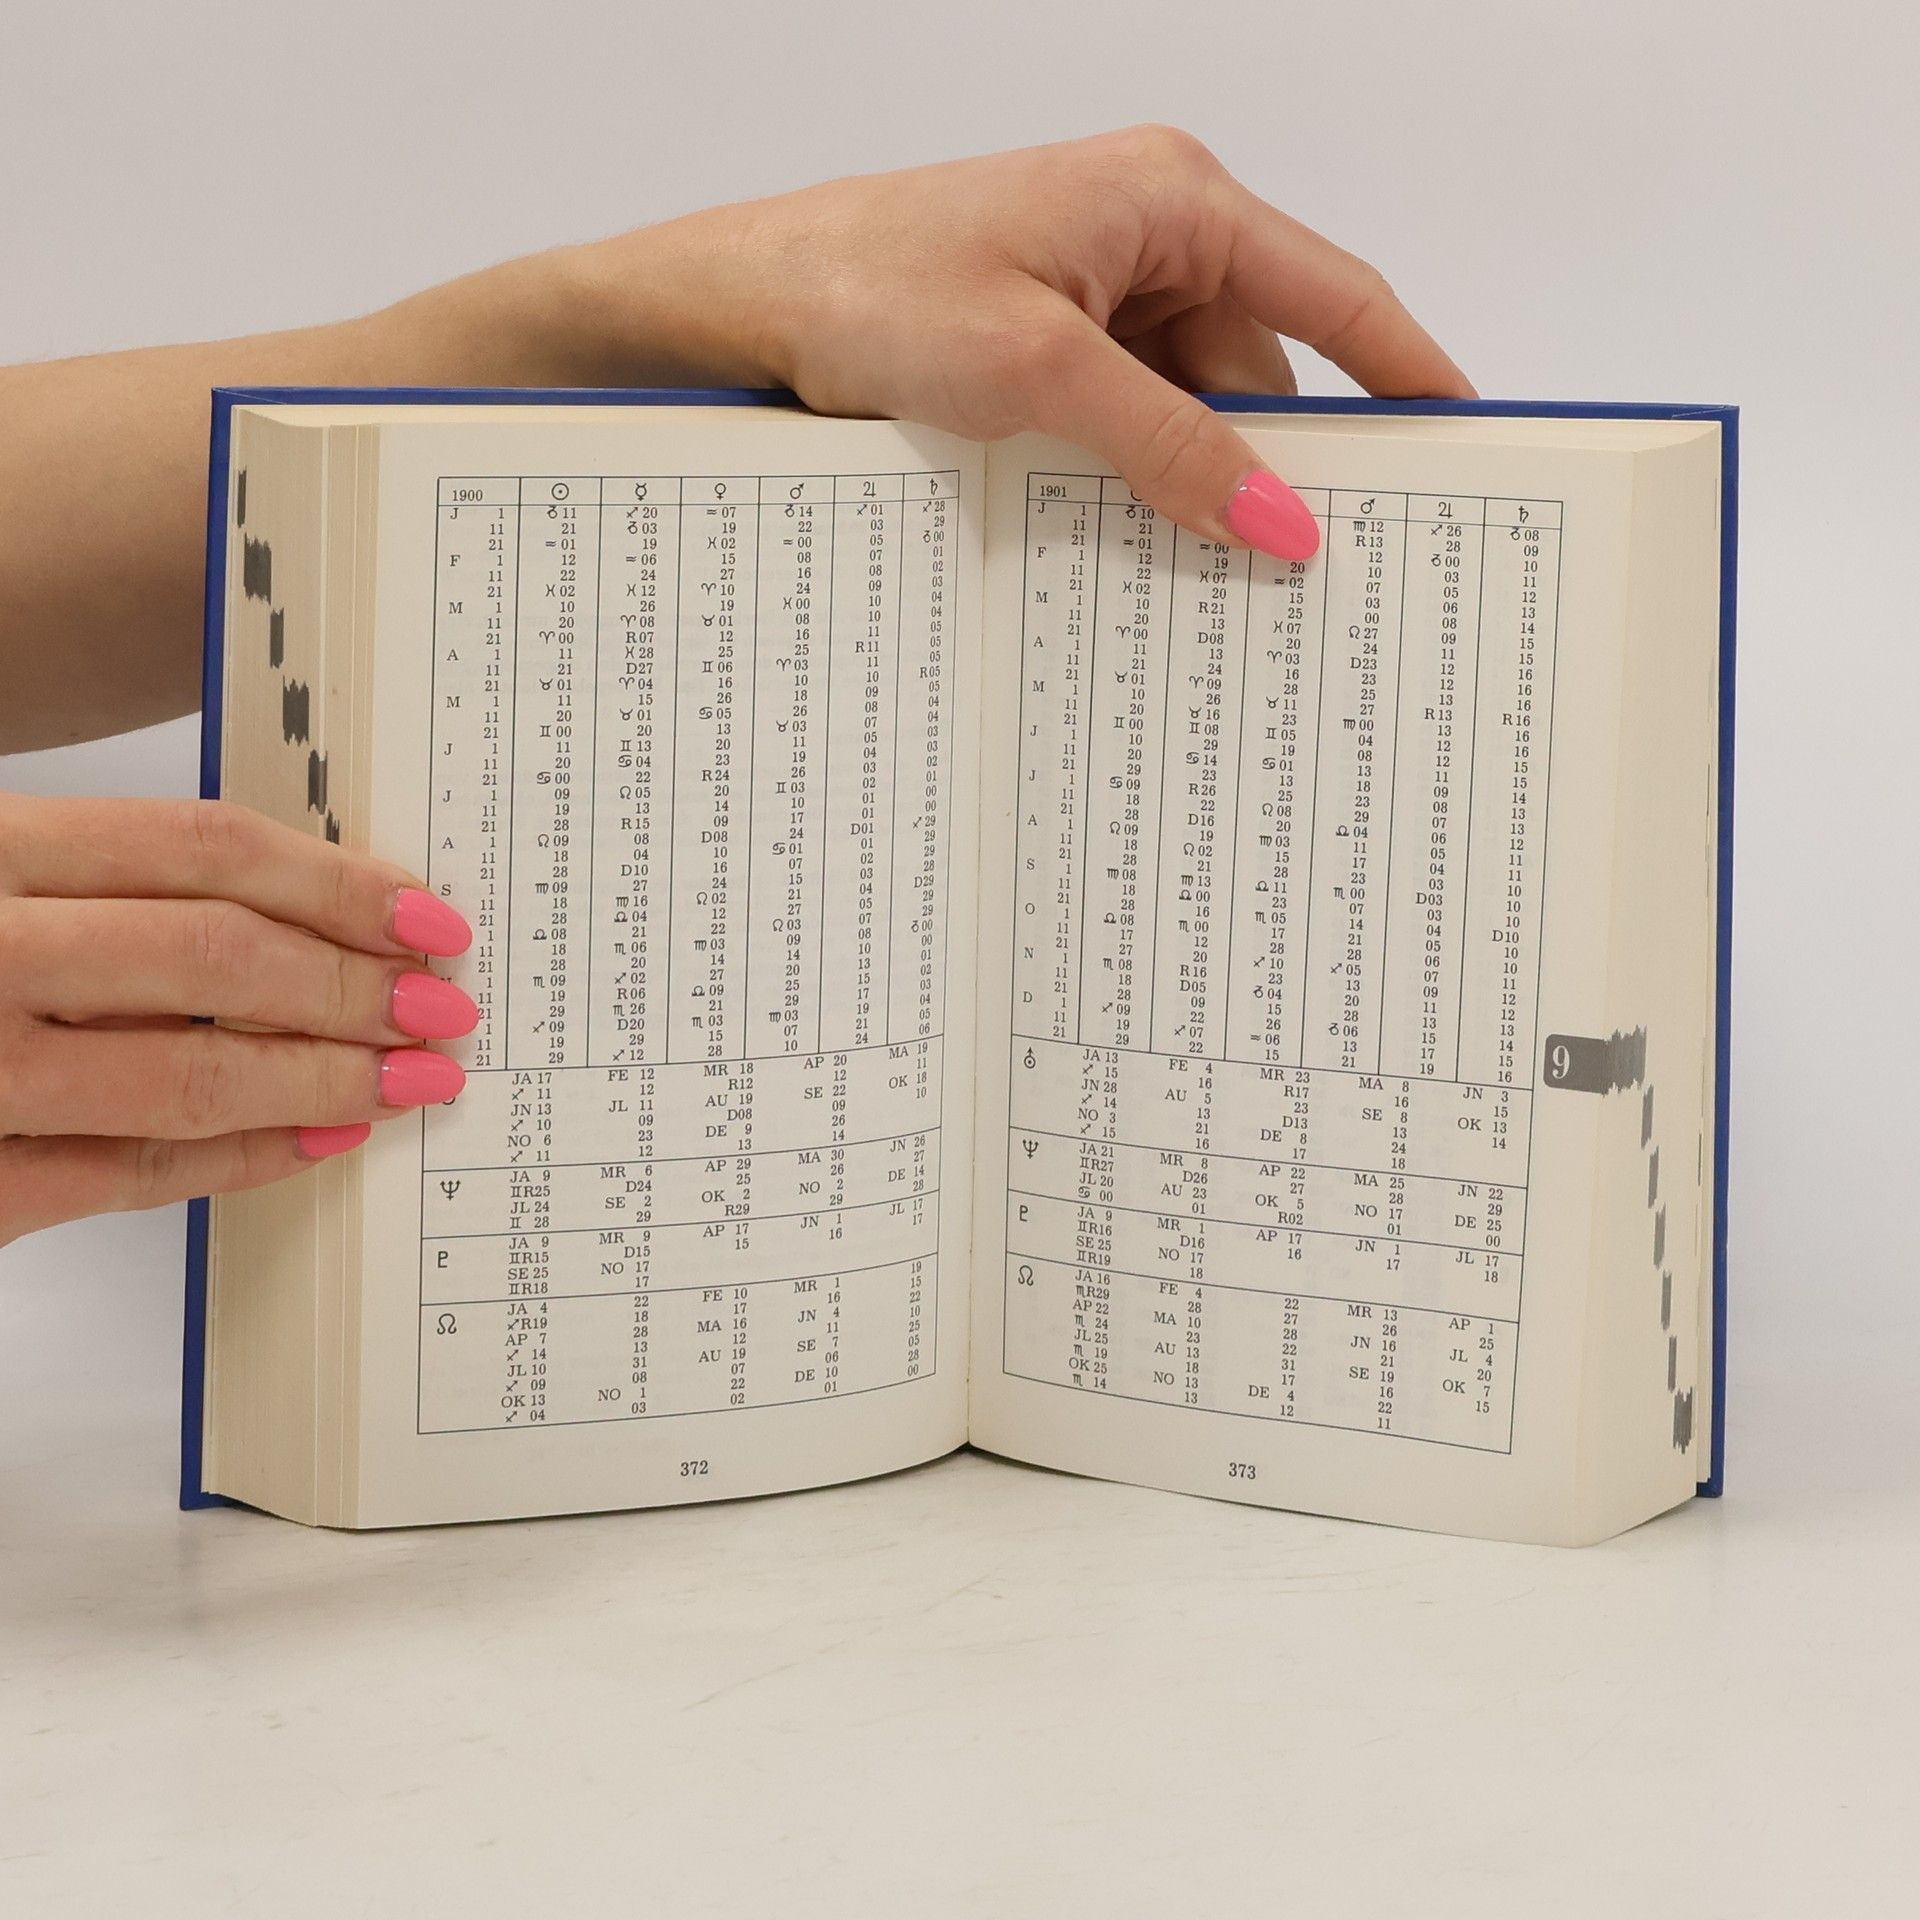 1900 ☉ ☿ ♀ ♂ ♃ ♄
J 1 ♑11 ♐20 ♒07 ♑14 ♐01 ♐28
11 21 ♑03 19 22 03 29
21 ♒01 19 ♓02 ♒00 05 ♑00
F 1 12 ♒06 15 08 07 01
11 22 24 27 16 08 02
21 ♓02 ♓12 ♈10 24 09 03
M 1 10 26 19 ♓00 10 04
11 20 ♈08 ♉01 08 10 04
21 ♈00 R07 12 16 11 05
A 1 11 ♓28 25 25 R11 05
11 21 D27 ♊06 ♈03 11 05
21 ♉01 ♈04 16 10 10 R05
M 1 11 15 26 18 09 05
11 20 ♉01 ♋05 26 08 04
21 ♊00 20 13 ♉03 07 04
J 1 11 ♊13 20 11 05 03
11 20 ♋04 23 19 04 03
21 ♋00 22 R24 26 03 02
J 1 09 ♌05 20 ♊03 02 01
11 19 13 14 10 01 00
21 28 R15 09 17 01 00
A 1 ♌09 08 D08 24 D01 ♐29
11 18 04 10 ♋01 01 29
21 28 D10 16 07 02 29
S 1 ♍09 27 24 15 03 28
11 18 ♍16 ♌02 21 04 D29
21 28 ♎04 12 27 05 29
1 ♎08 21 22 ♌03 07 29
11 18 ♏06 ♍03 09 08 ♑00
21 28 20 14 14 10 00
1 ♏09 ♐02 27 20 13 01
11 19 R06 ♎09 25 15 02
21 29 ♏26 21 29 17 03
1 ♐09 D20 ♏03 ♍03 19 04
11 19 29 15 07 21 05
21 29 ♐12 28 10 24 06
JA 17 FE 12 MR 18 AP 20 MA 19
♐ 11 12 R12 12 11
JN 13 JL 11 AU 19 SE 22 OK 18
♐ 10 09 D08 09 10
NO 6 23 DE 9 26
♐ 11 12 13 14
♆ JA 9 MR 6 AP 29 MA 30 JN 26
♊R25 D24 25 26 27
JL 24 SE 2 OK 2 NO 2 DE 14
♊ 28 29 R29 29 28
♇ JA 9 MR 9 AP 17 JN 1 JL 17
♊R15 D15 15 16 17
SE 25 NO 17
♊R18 17
☊ JA 4 22 FE 10 MR 1 19
♐R19 18 17 16 15
AP 7 28 MA 16 JN 4 22
♐ 14 13 12 11 10
JL 10 31 AU 19 SE 7 25
♐ 09 08 07 06 05
OK 13 NO 1 22 DE 10 28
♐ 04 03 02 01 00
372
1901 ♂ ♃ ♄
J 1 ♑10 ♍12 ♐26 ♑08
11 21 R13 28 09
21 ♒01 ♒00 12 ♑00 10
F 1 12 19 20 10 03 11
11 22 ♓07 ♒02 07 05 12
21 ♓02 20 15 03 06 13
M 1 10 R21 25 00 08 14
11 20 13 ♓07 ♌27 09 15
21 ♈00 D08 20 24 11 15
A 1 11 13 ♈03 D23 12 16
11 21 24 16 23 12 16
21 ♉01 ♈09 28 25 13 16
M 1 10 26 ♉11 27 R13 R16
11 20 ♉16 23 ♍00 13 16
21 ♊00 ♊08 ♊05 04 12 16
J 1 10 29 19 08 12 15
11 20 ♋14 ♋01 13 11 15
21 29 23 13 18 09 14
J 1 ♋09 R26 25 23 08 13
11 18 22 ♌08 29 07 13
21 28 D16 20 ♎04 06 12
A 1 ♌09 19 ♍03 11 05 11
11 18 ♌02 15 17 04 11
21 28 21 28 23 03 10
S 1 ♍08 ♍13 ♎11 ♏00 D03 10
11 18 ♎00 23 07 03 10
21 28 16 ♏05 14 04 D10
O 1 ♎08 ♏00 17 21 05 10
11 17 12 28 28 06 10
21 27 20 ♐10 ♐05 07 11
N 1 ♏08 R16 23 13 09 12
11 18 D05 ♑04 20 11 12
21 28 09 15 28 13 13
D 1 ♐09 22 26 ♑06 15 14
11 19 ♐07 ♒06 13 17 15
21 29 22 15 21 19 16
⛢ JA 13 FE 4 MR 23 MA 8 JN 3
♐ 15 16 R17 16 15
JN 28 AU 5 23 SE 8 OK 13
♐ 14 13 D13 13 14
NO 3 21 DE 8 24
♐ 15 16 17 18
♆ JA 21 MR 8 AP 22 MA 25 JN 22
♊R27 D26 27 28 29
JL 20 AU 23 OK 5 NO 17 DE 25
♋ 00 01 R02 01 00
♇ JA 9 MR 1 AP 17 JN 1 JL 17
♊R16 D16 16 17 18
SE 25 NO 17
♊R19 18
☊ JA 16 FE 4 22 MR 13 AP 1
♏R29 28 27 26 25
AP 22 MA 10 28 JN 16 JL 4
♏ 24 23 22 21 20
JL 25 AU 13 31 SE 19 OK 7
♏ 19 18 17 16 15
OK 25 NO 13 DE 4 22
♏ 14 13 12 11
373
9